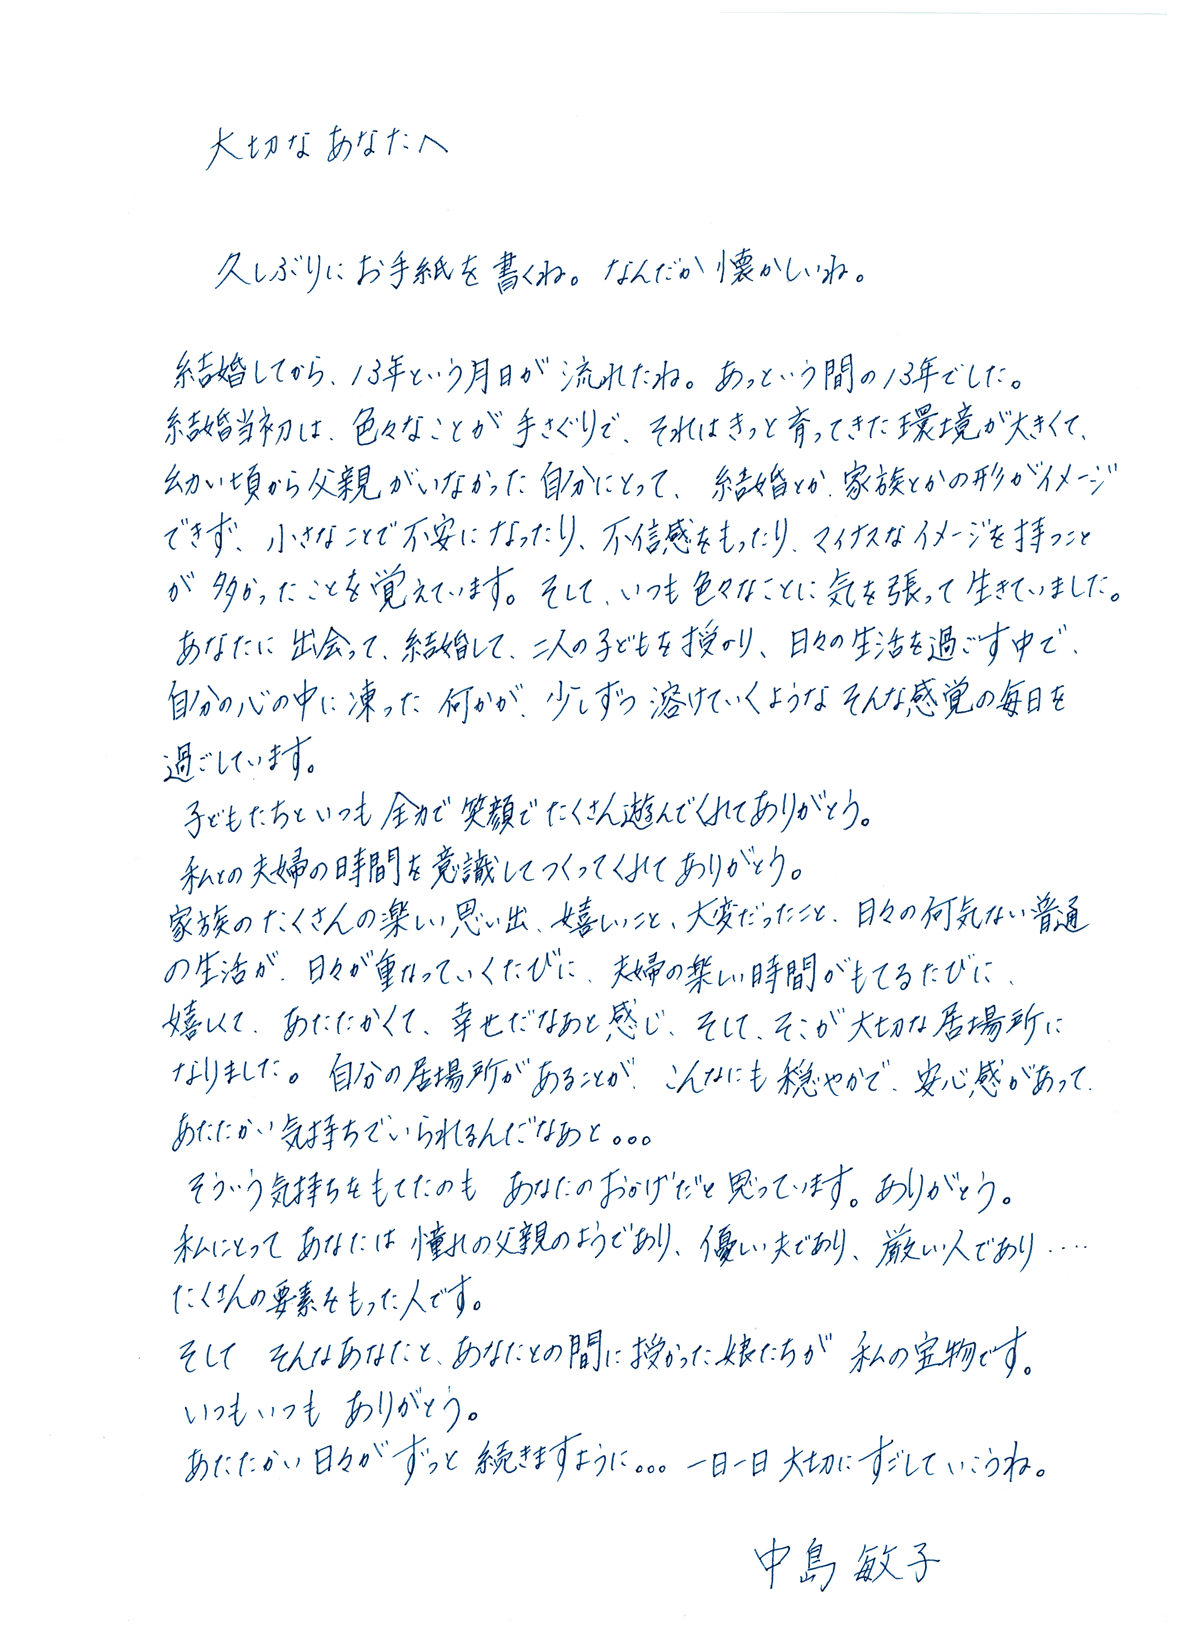 大切なあなたへ
久しぶりにお手紙を書くね。なんだか懐かしいね。
結婚してから、13年という月日が流れたね。あっという間の13年でした。
結婚当初は、色々なことが手さぐりで、それはきっと育ってきた環境が大きくて、
幼い頃から父親がいなかった自分にとって、結婚とか、家族とかの形がイメージ
できず、小さなことで不安になったり、不信感をもったり、マイナスなイメージを持つこと
が多かったことを覚えています。そして、いつも色々なことに気を張って生きていました。
あなたに出会って、結婚して、二人の子どもを授かり、日々の生活を過ごす中で、
自分の心の中に凍った何かが、少しずつ溶けていくようなそんな感覚の毎日を
過ごしています。
子どもたちといつも全力で笑顔でたくさん遊んでくれてありがとう。
私との夫婦の時間を意識してつくってくれてありがとう。
家族のたくさんの楽しい思い出、嬉しいこと、大変だったこと、日々の何気ない普通
の生活が、日々が重なっていくたびに、夫婦の楽しい時間がもてるたびに、
嬉しくて、あたたかくて、幸せだなあと感じ、そして、そこが大切な居場所に
なりました。自分の居場所があることが、こんなにも穏やかで、安心感があって、
あたたかい気持ちでいられるんだなあと。。。
そういう気持ちをもてたのもあなたのおかげだと思っています。ありがとう。
私にとってあなたは憧れの父親のようであり、優しい夫であり、厳しい人であり‥‥
たくさんの要素をもった人です。
そしてそんなあなたと、あなたとの間に授かった娘たちが私の宝物です。
いつもいつもありがとう。
あたたかい日々がずっと続きますように。。。一日一日大切にすごしていこうね。
中島敏子